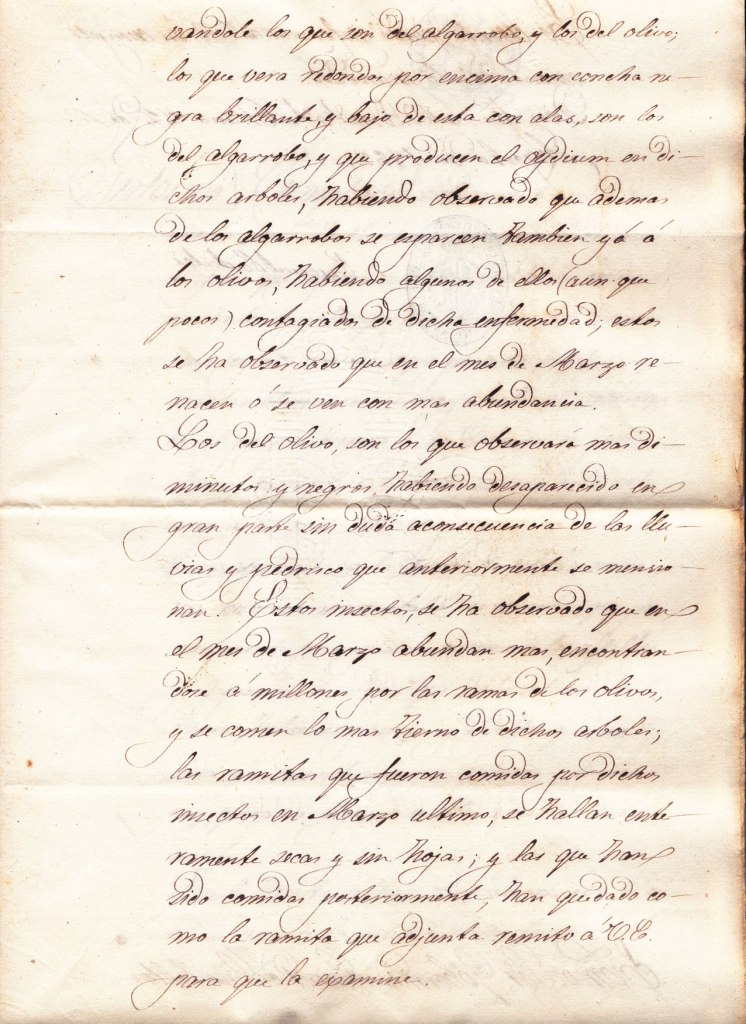 vandole los que son del algarrobo, y los del olivo;
los que vera redondos por encima con concha ne-
gra brillante, y bajo de esta con alas, son los
del algarrobo, y que producen el oydium en di-
chos arboles, habiendo observado que ademas
de los algarrobos se esparcen tambien yá á
los olivos, habiendo algunos de ellos (aun que
pocos) contagiados de dicha enfermedad; estos
se ha observado que en el mes de Marzo re-
nacen ó se ven con mas abundancia.
Los del olivo, son los que observará mas di-
minutos y negros, habiendo desaparecido en
gran parte sin duda aconsecuencia de las llu-
vias y pedrisco que anteriormente se mencio-
nan. Estos insectos, se ha observado que en
el mes de Marzo abundan mas, encontran-
dose á millones por las ramas de los olivos,
y se comen lo mas tierno de dichos arboles;
las ramitas que fueron comidas por dichos
insectos en Marzo ultimo, se hallan ente-
ramente secas y sin hojas; y las que han
sido comidas posteriormente, han quedado co-
mo la ramita que adjunta remito á V.E.
para que la examine.